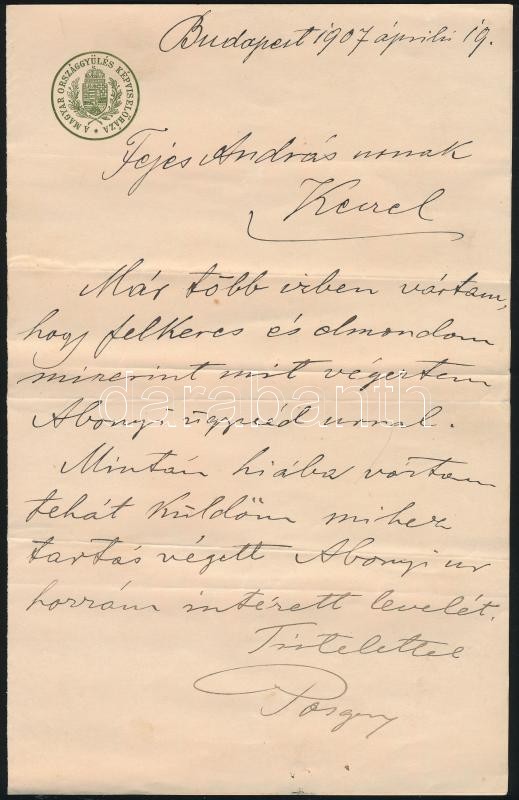 Budapest 1907 április 19.
A MAGYAR ORSZÁGGYÜLÉS KÉPVISELŐHÁZA
Fejes András urnak
Már több izben vártam,
hogy felkeres és elmondom
miszerint mit végeztem
darabanth
Abonyi ügyvéd urral.
Miután hiába vártam
tehát küldöm mihez
tartás végett Abonyi ur
hozzám intézett levelét.
Tisztelettel